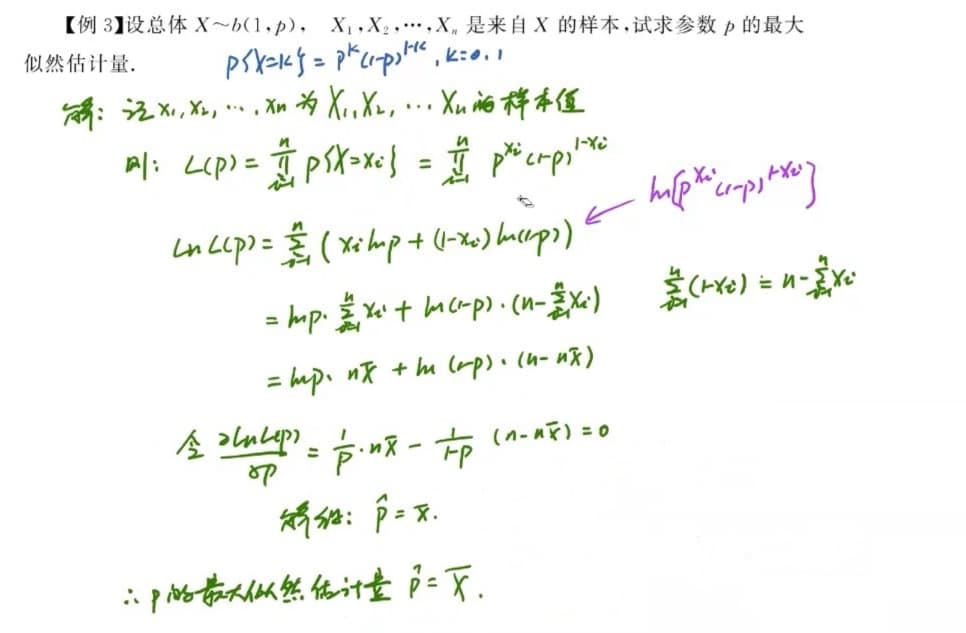 【例 3】设总体 X～b(1,p), X₁,X₂,⋯,Xₙ 是来自 X 的样本,试求参数 p 的最大
似然估计量.
P{X=k} = p^k (1-p)^{1-k}, k=0,1
解: 记 x₁, x₂, ⋯, xₙ 为 X₁, X₂, ⋯ Xₙ 的样本值
则: L(p) = ∏_{i=1}^{n} P{X=x_i} = ∏_{i=1}^{n} p^{x_i} (1-p)^{1-x_i}
ln[p^{x_i} (1-p)^{1-x_i}]
ln L(p) = ∑_{i=1}^{n} ( x_i ln p + (1-x_i) ln(1-p) )
= ln p · ∑_{i=1}^{n} x_i + ln(1-p) · (n - ∑_{i=1}^{n} x_i)
∑_{i=1}^{n} (1-x_i) = n - ∑_{i=1}^{n} x_i
= ln p · n x̄ + ln (1-p) · (n - n x̄)
令 ∂ln L(p)/∂p = 1/p · n x̄ - 1/(1-p) (n - n x̄) = 0
解得: p̂ = x̄.
∴ p 的最大似然估计量 p̂ = X̄.